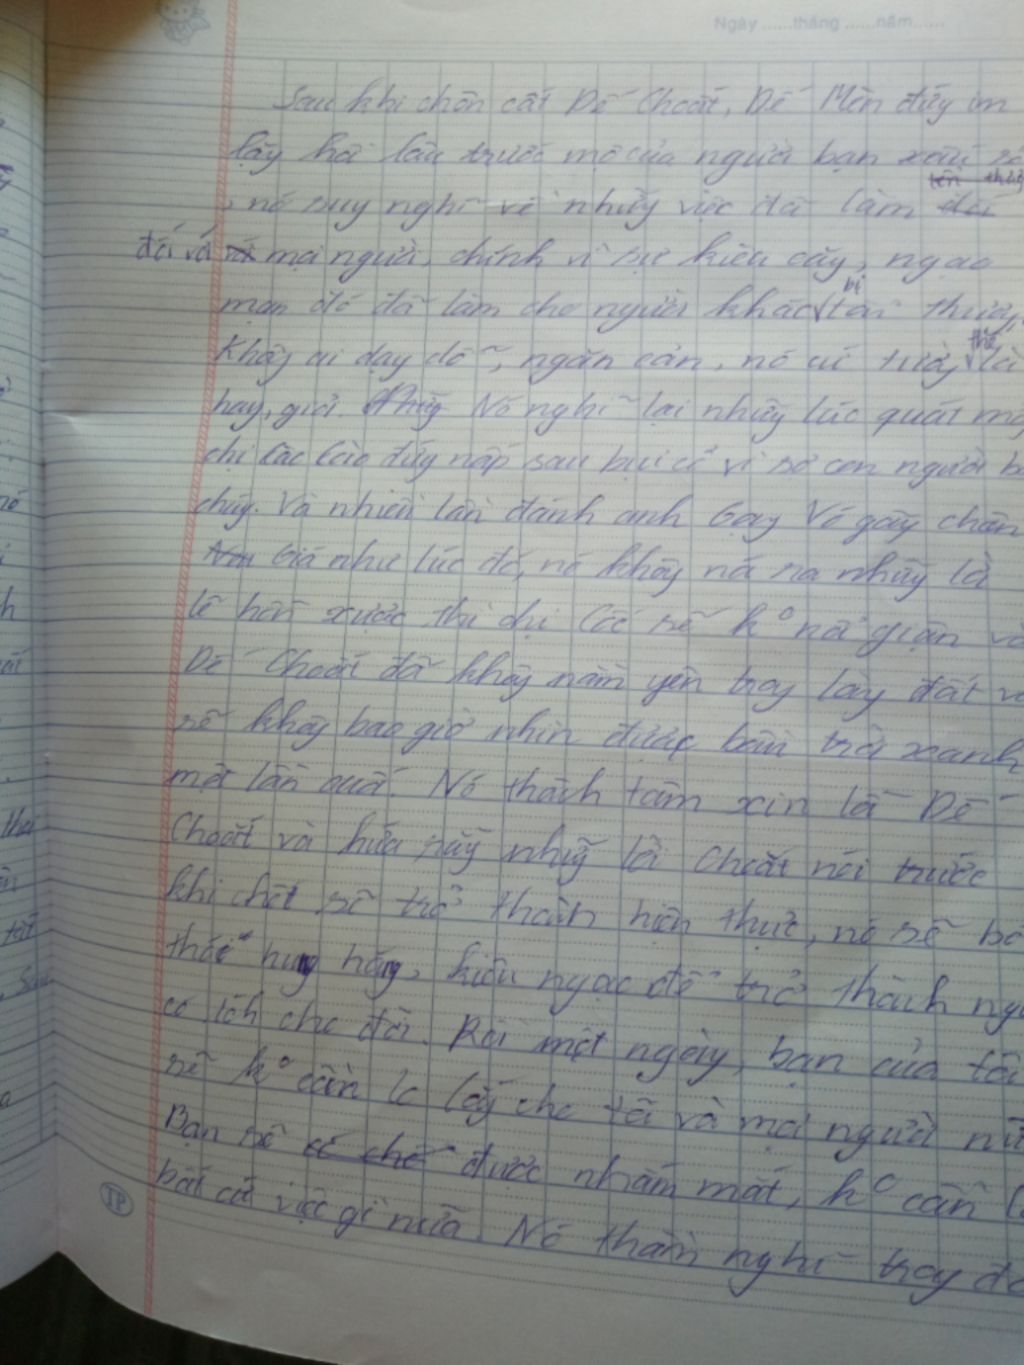 Ngày ......tháng ......năm......
Sau khi chôn cất Dế Choắt, Dế Mèn đứng im
lặng hồi lâu trước mộ của người bạn xấu số
, nó suy nghĩ về những việc đã làm
đối với mọi người, chính vì sự kiêu căng, ngạo
mạn đó đã làm cho người khác bị tổn thương,
Không ai dạy dỗ, ngăn cản, nó cứ tưởng thế là
hay, giỏi. Nó nghĩ lại những lúc quát mấy
chị Cào Cào đứng nấp sau bụi cỏ vì sợ con người
chúng. Và nhiều lần đánh anh Gọng Vó gãy chân
Giá như lúc đó, nó không nói ra những lời
lẽ hỗn xược thì chị Cốc sẽ k° nổi giận và
Dế Choắt đã không nằm yên trong lòng đất và
sẽ không bao giờ nhìn được bầu trời xanh
một lần nữa. Nó thành tâm xin lỗi Dế
Choắt và hứa rằng những lời Choắt nói trước
khi chết sẽ trở thành hiện thực, nó sẽ bỏ
thói hung hăng, kiêu ngạo để trở thành
có ích cho đời. Rồi một ngày, bạn của tôi
sẽ k° cần lo lắng cho tôi và mọi người nữa
Bạn sẽ được nhắm mắt, k° cần
bất cứ việc gì nữa. Nó thầm nghĩ trong
JP